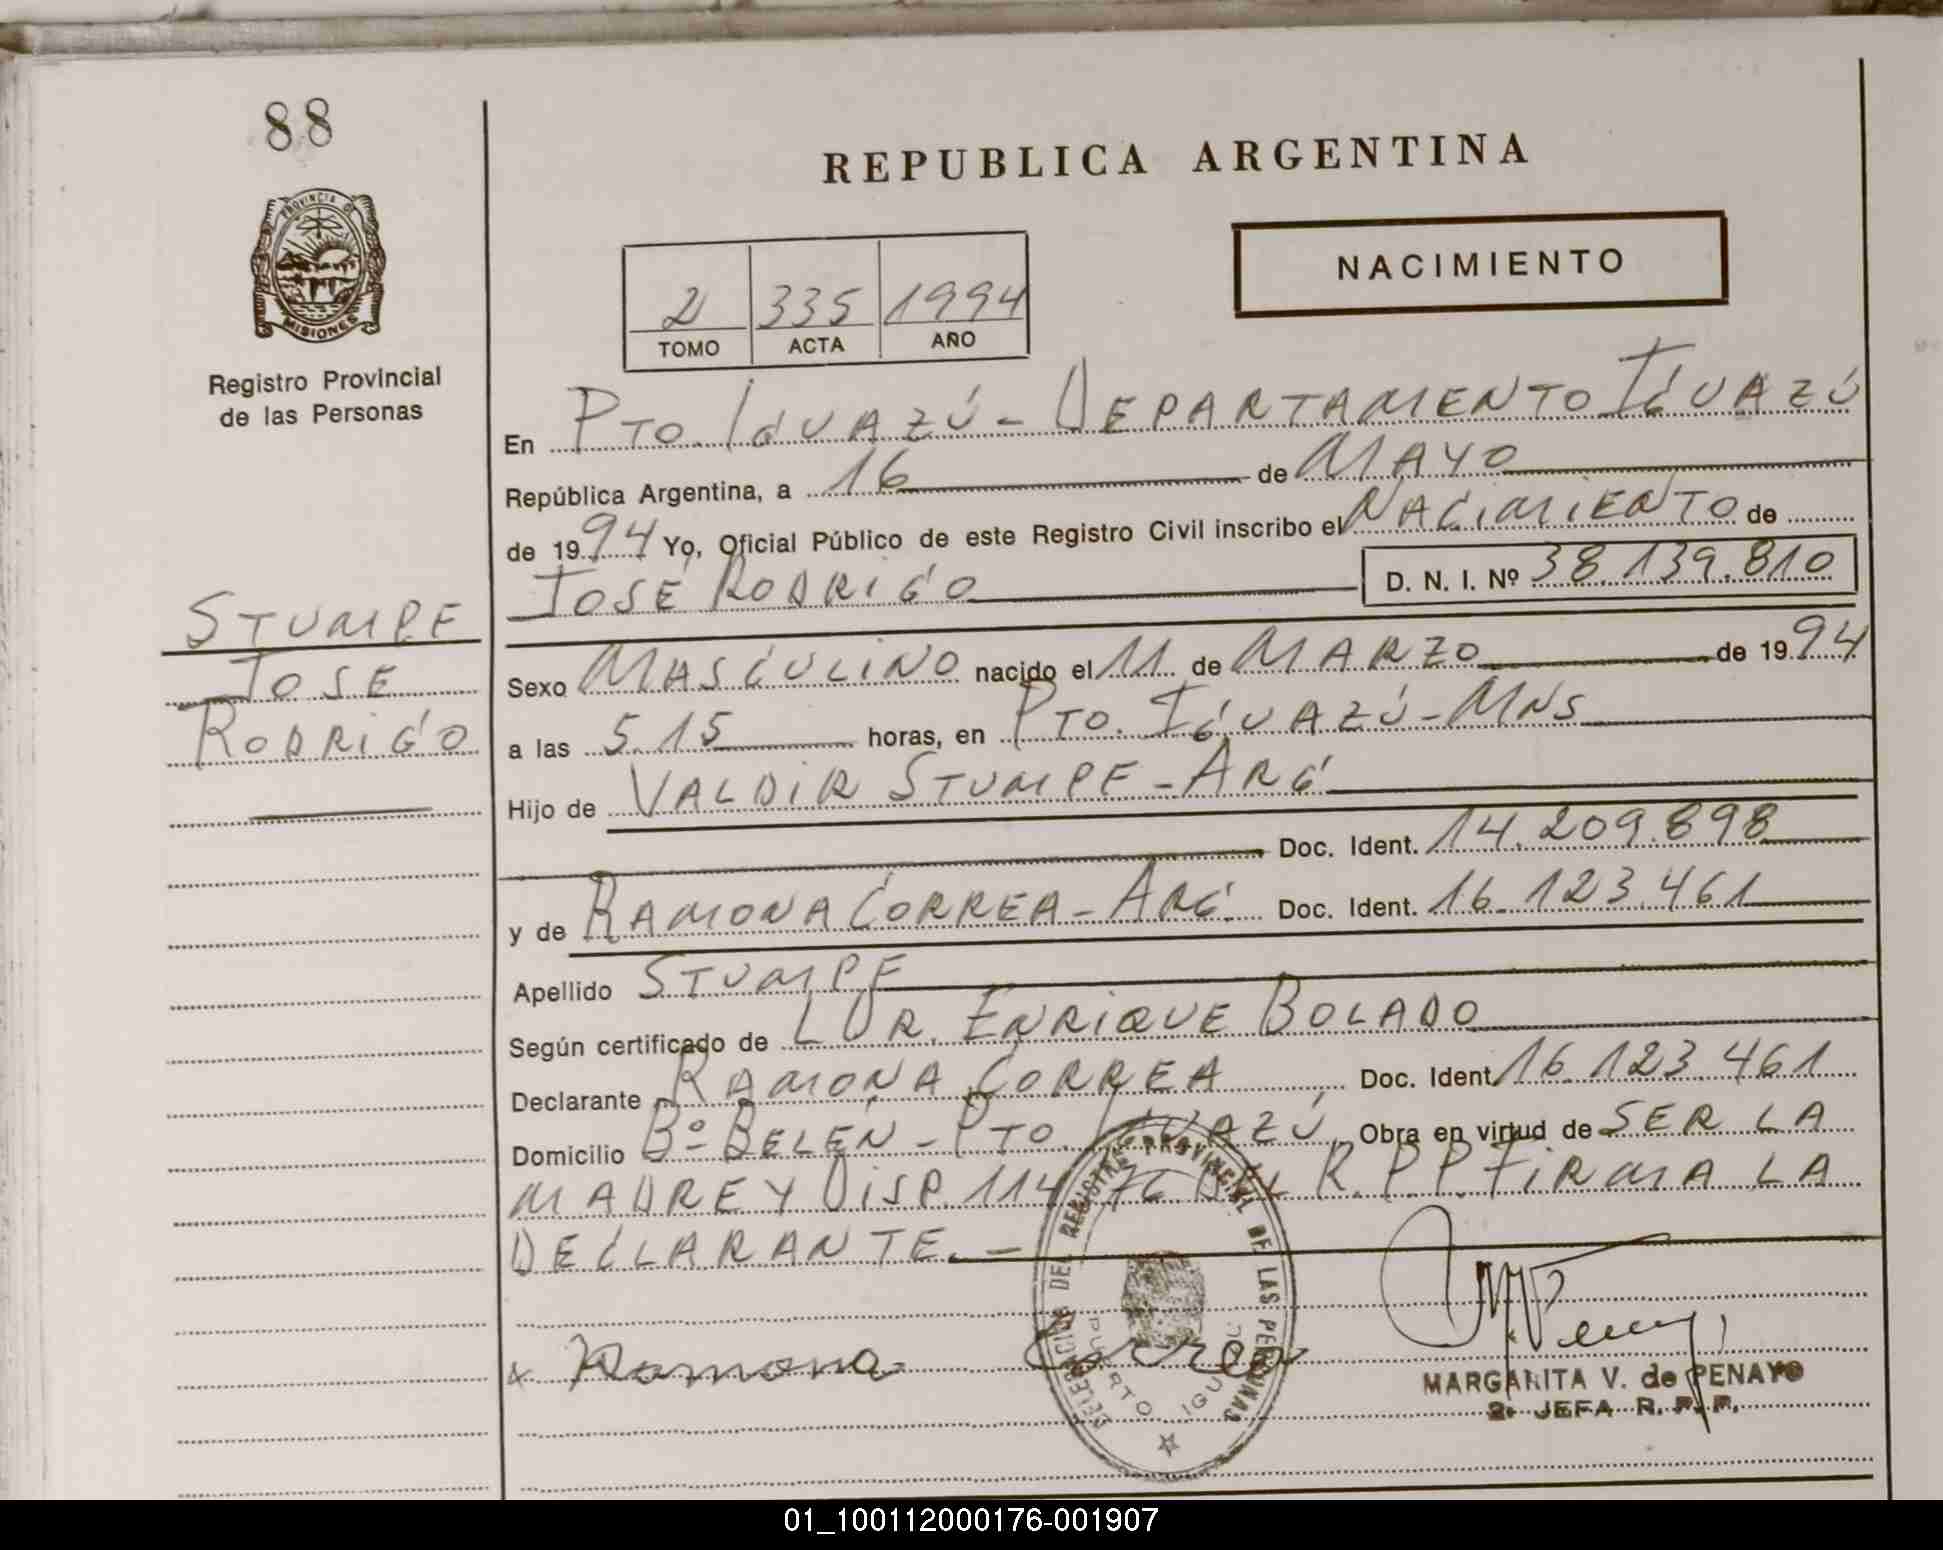 88
PROVINCIA DE
MISIONES
Registro Provincial
de las Personas
STUMPF
JOSE
RODRIGO
REPUBLICA ARGENTINA
NACIMIENTO
2 335 1994
TOMO ACTA AÑO
En PTO. IGUAZÚ - DEPARTAMENTO IGUAZÚ
República Argentina, a 16 de MAYO
de 1994 Yo, Oficial Público de este Registro Civil inscribo el NACIMIENTO de
JOSÉ RODRIGO D. N. I. Nº 38.139.810
Sexo MASCULINO nacido el 11 de MARZO de 1994
a las 5.15 horas, en PTO. IGUAZÚ - MNS
Hijo de VALDIR STUMPF - ARG
Doc. Ident. 14.209.898
y de RAMONA CORREA - ARG. Doc. Ident. 16.123.461
Apellido STUMPF
Según certificado de DR. ENRIQUE BOLADO
Declarante RAMONA CORREA Doc. Ident. 16.123.461
Domicilio Bº BELÉN - PTO. IGUAZÚ Obra en virtud de SER LA
MADRE Y DISP. 114/76 DEL R.P.P. FIRMA LA
DECLARANTE. -
x Ramona Correa
DELEGACION DEL REGISTRO PROVINCIAL DE LAS PERSONAS
PUERTO IGUAZU
MARGARITA V. de PENAYO
2ª JEFA R. P. P.
01_100112000176-001907